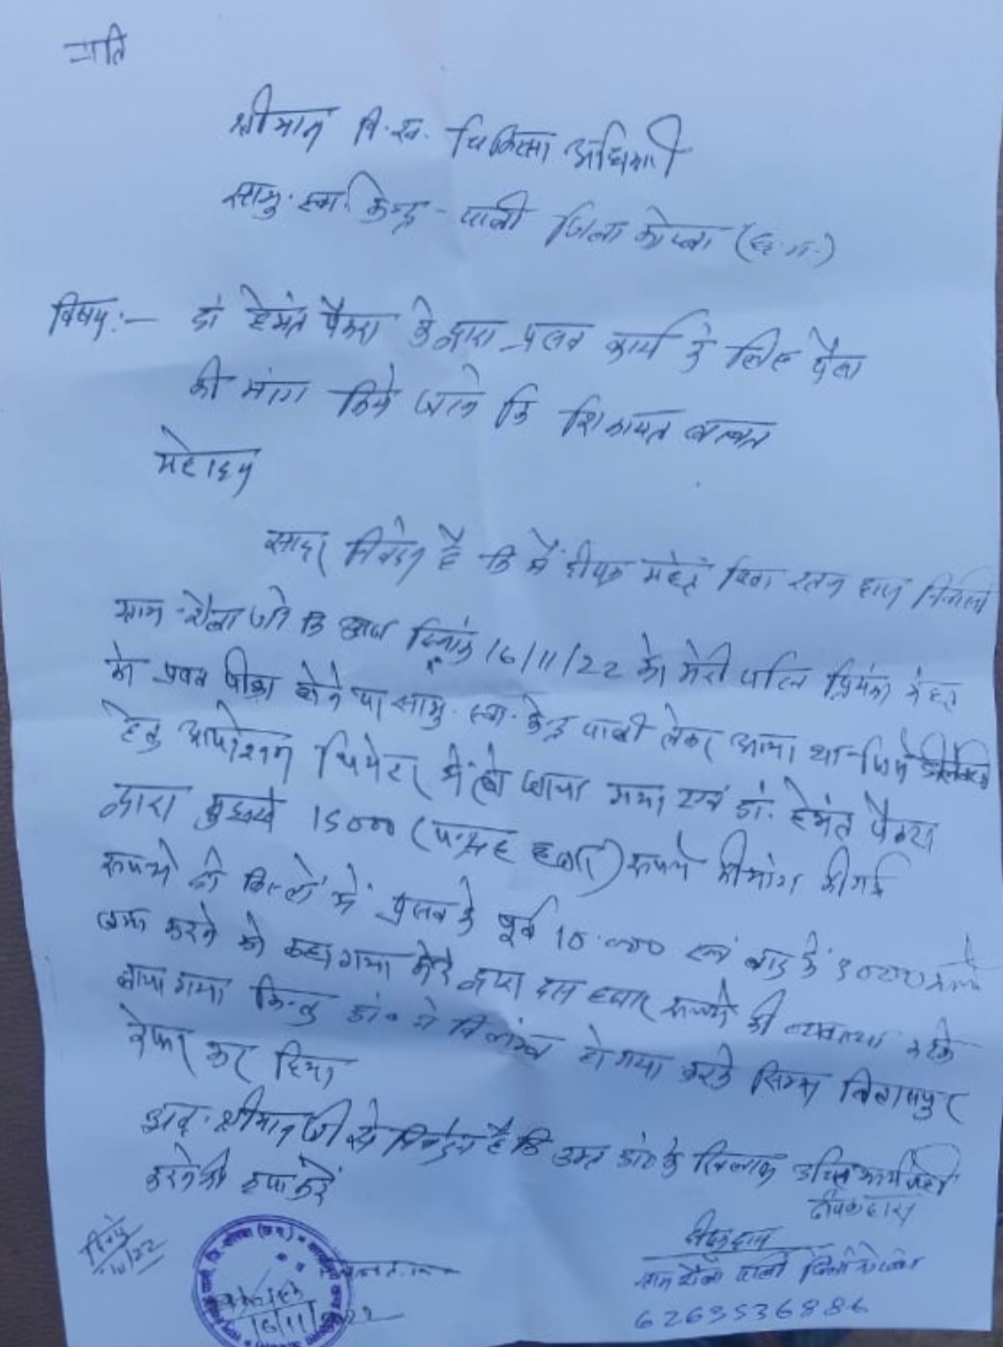 प्रति
श्रीमान वि.ख. चिकित्सा अधिकारी
सामु. स्वा. केन्द्र - पाली जिला कोरबा (छ.ग.)
विषय:- डां हेमंत पैकरा के द्वारा प्रसव कार्य के लिए पैसा
की मांग किये जाने कि शिकायत बाबत
महोदय
सादर निवेदन है कि मैं दीपक महंत पिता रतन दास निवासी
ग्राम - शैला जो कि आज दिनांक 16/11/22 को मेरी पत्नि प्रियंका महंत
को प्रसव पीड़ा होने पर सामु. स्वा. केन्द्र पाली लेकर आया था जिसे
हेतु आपरेशन थियेटर में ले जाया गया एवं डां. हेमंत पैकरा
द्वारा मुझसे 15000 (पन्द्रह हजार) रूपये की मांग की गई
रूपये दो किस्तों में प्रसव के पूर्व 10.000 एवं बाद में 5000 रूपये
जमा करने को कहा गया मेरे द्वारा दस हजार रूपये की व्यवस्था करके
लाया गया किन्तु डां० ने विलंब हो गया करके सिम्स बिलासपुर
रेफर कर दिया
अतः श्रीमान जी से निवेदन है कि उक्त डां० के खिलाफ उचित कार्यवाही
करने की कृपा करें
दीपक दास
दीपक दास
ग्राम शैला पाली जिला कोरबा
16/11/2022
6263536886